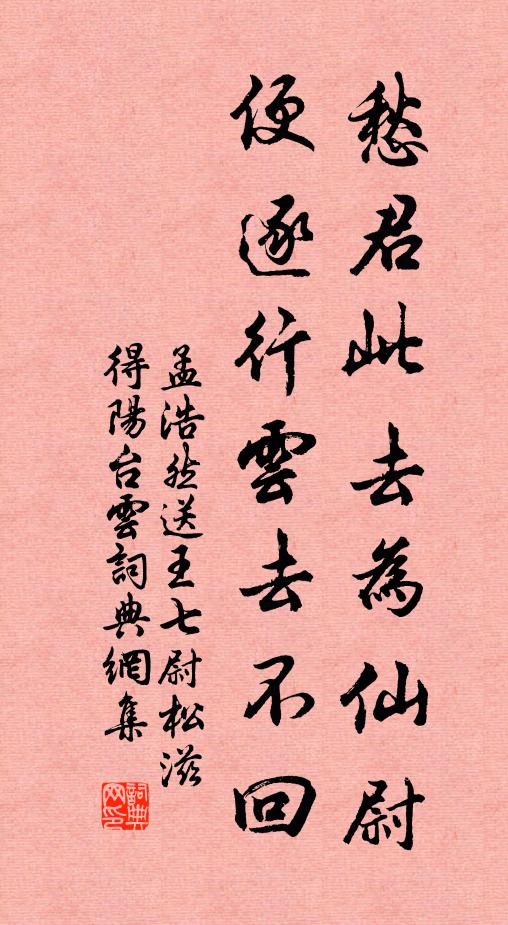 愁君此去為仙尉
便逐行雲去不回
孟浩然送王七尉松滋
得陽台雲詞典網集
詞典
网印